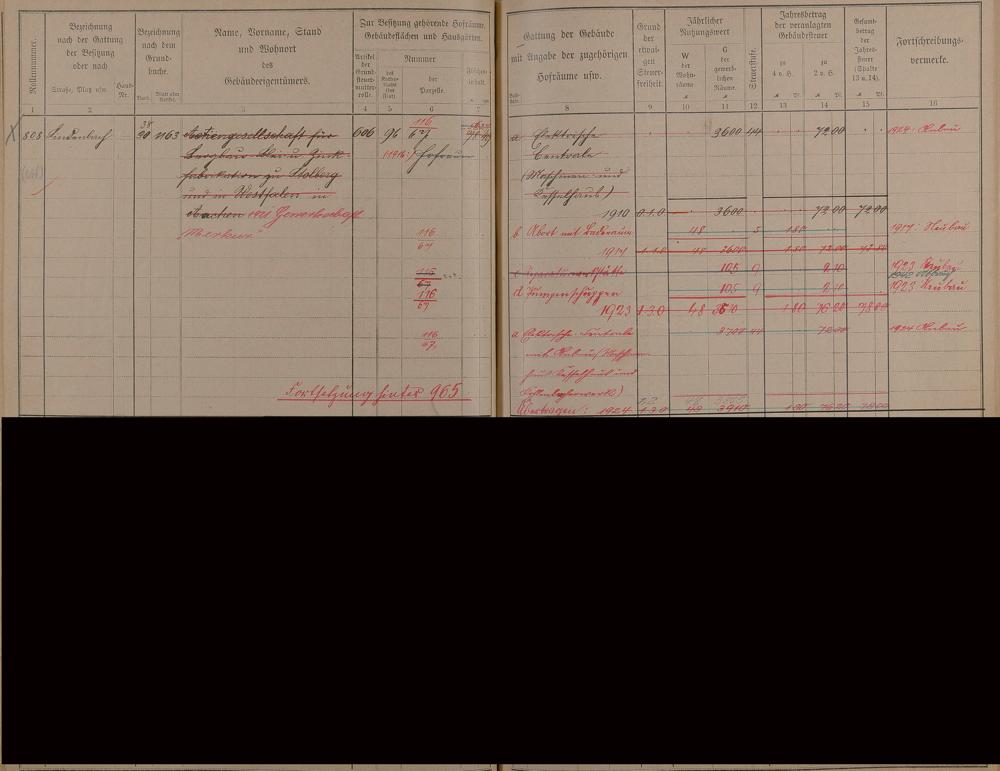 Rollennummer.
Bezeichnung
nach der Gattung
der Besitzung
oder nach
Straße, Platz usw.
Haus-
Nr.
Bezeichnung
nach dem
Grund-
buche.
Band.
Blatt oder
Artikel.
Name, Vorname, Stand
und Wohnort
des
Gebäudeeigentümers.
Zur Besitzung gehörende Hofräume,
Gebäudeflächen und Hausgärten.
Artikel
der
Grund-
steuer-
mutter-
rolle.
Nummer
des
der
Parzelle.
1
2
3
4
5
6
7
808 Lindenbach
38
20 1163 Actiengesellschaft für
Bergbau Blei u. Zink-
fabrikation zu Stolberg
und in Westfalen in
Aachen 1921 Gewerkschaft
„Merkur"
606 96
116
67
Hofraum
116
67
115
67
116
67
116
67
Fortsetzung hinter 965
Gattung der Gebäude
mit Angabe der zugehörigen
Hofräume usw.
Grund
der
etwai-
gen
Steuer-
freiheit.
Jährlicher
Nutzungswert
W
der
Wohn-
räume.
G
der
gewerb-
lichen
Räume.
Steuerstufe.
Jahresbetrag
der veranlagten
Gebäudesteuer
zu
4 v. H.
zu
2 v. H.
Gesamt-
betrag
der
Jahres-
steuer
(Spalte
13 u. 14).
Fortschreibungs-
vermerke.
8
9
10
11
12
13
14
15
16
a Elektrische 3600 44 72 00 1924: Umbau
Centrale
(Maschinen- und
Kesselhaus)
1910 0.1.0 3600 72 00 72 00
b Abort mit Baderaum 48 5 1 80 1917: Neubau
1917 1.1.0 48 3600 1 80 72 00
c Reparaturwerkstätte 105 9 2 10 1923 Neubau
d Pumpenschuppen 105 9 2 10 1923 Neubau
1923 1.3.0 48 1 80 76 20 78 00
a Elektrische Centrale 3700 44 72 00 1924 Umbau
mit
und
Übertragen: 1924 1.3.0 48 3910 1 80 76 20 78 00